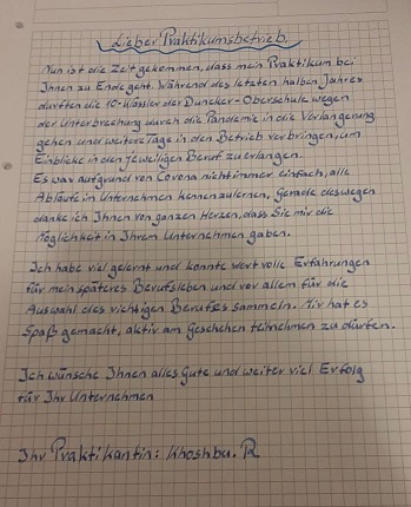 Lieber Praktikumsbetrieb
Nun ist die Zeit gekommen, dass mein Praktikum bei
Ihnen zu Ende geht. Während des letzten halben Jahres
durften die 10-Klässler der Duncker-Oberschule wegen
der Unterbrechung durch die Pandemie in die Verlängerung
gehen und weitere Tage in den Betrieb verbringen, um
Einblicke in den jeweiligen Beruf zu erlangen.
Es war aufgrund von Corona nicht immer einfach, alle
Abläufe im Unternehmen kennenzulernen, Gerade deswegen
danke ich Ihnen von ganzen Herzen, dass Sie mir die
Möglichkeit in Ihrem Unternehmen gaben.
Ich habe viel gelernt und konnte wertvolle Erfahrungen
für mein späteres Berufsleben und vor allem für die
Auswahl des richtigen Berufes sammeln. Mir hat es
Spaß gemacht, aktiv am Geschehen teilnehmen zu dürfen.
Ich wünsche Ihnen alles Gute und weiter viel Erfolg
für Ihr Unternehmen
Ihr Praktikantin: Khoshbu. R